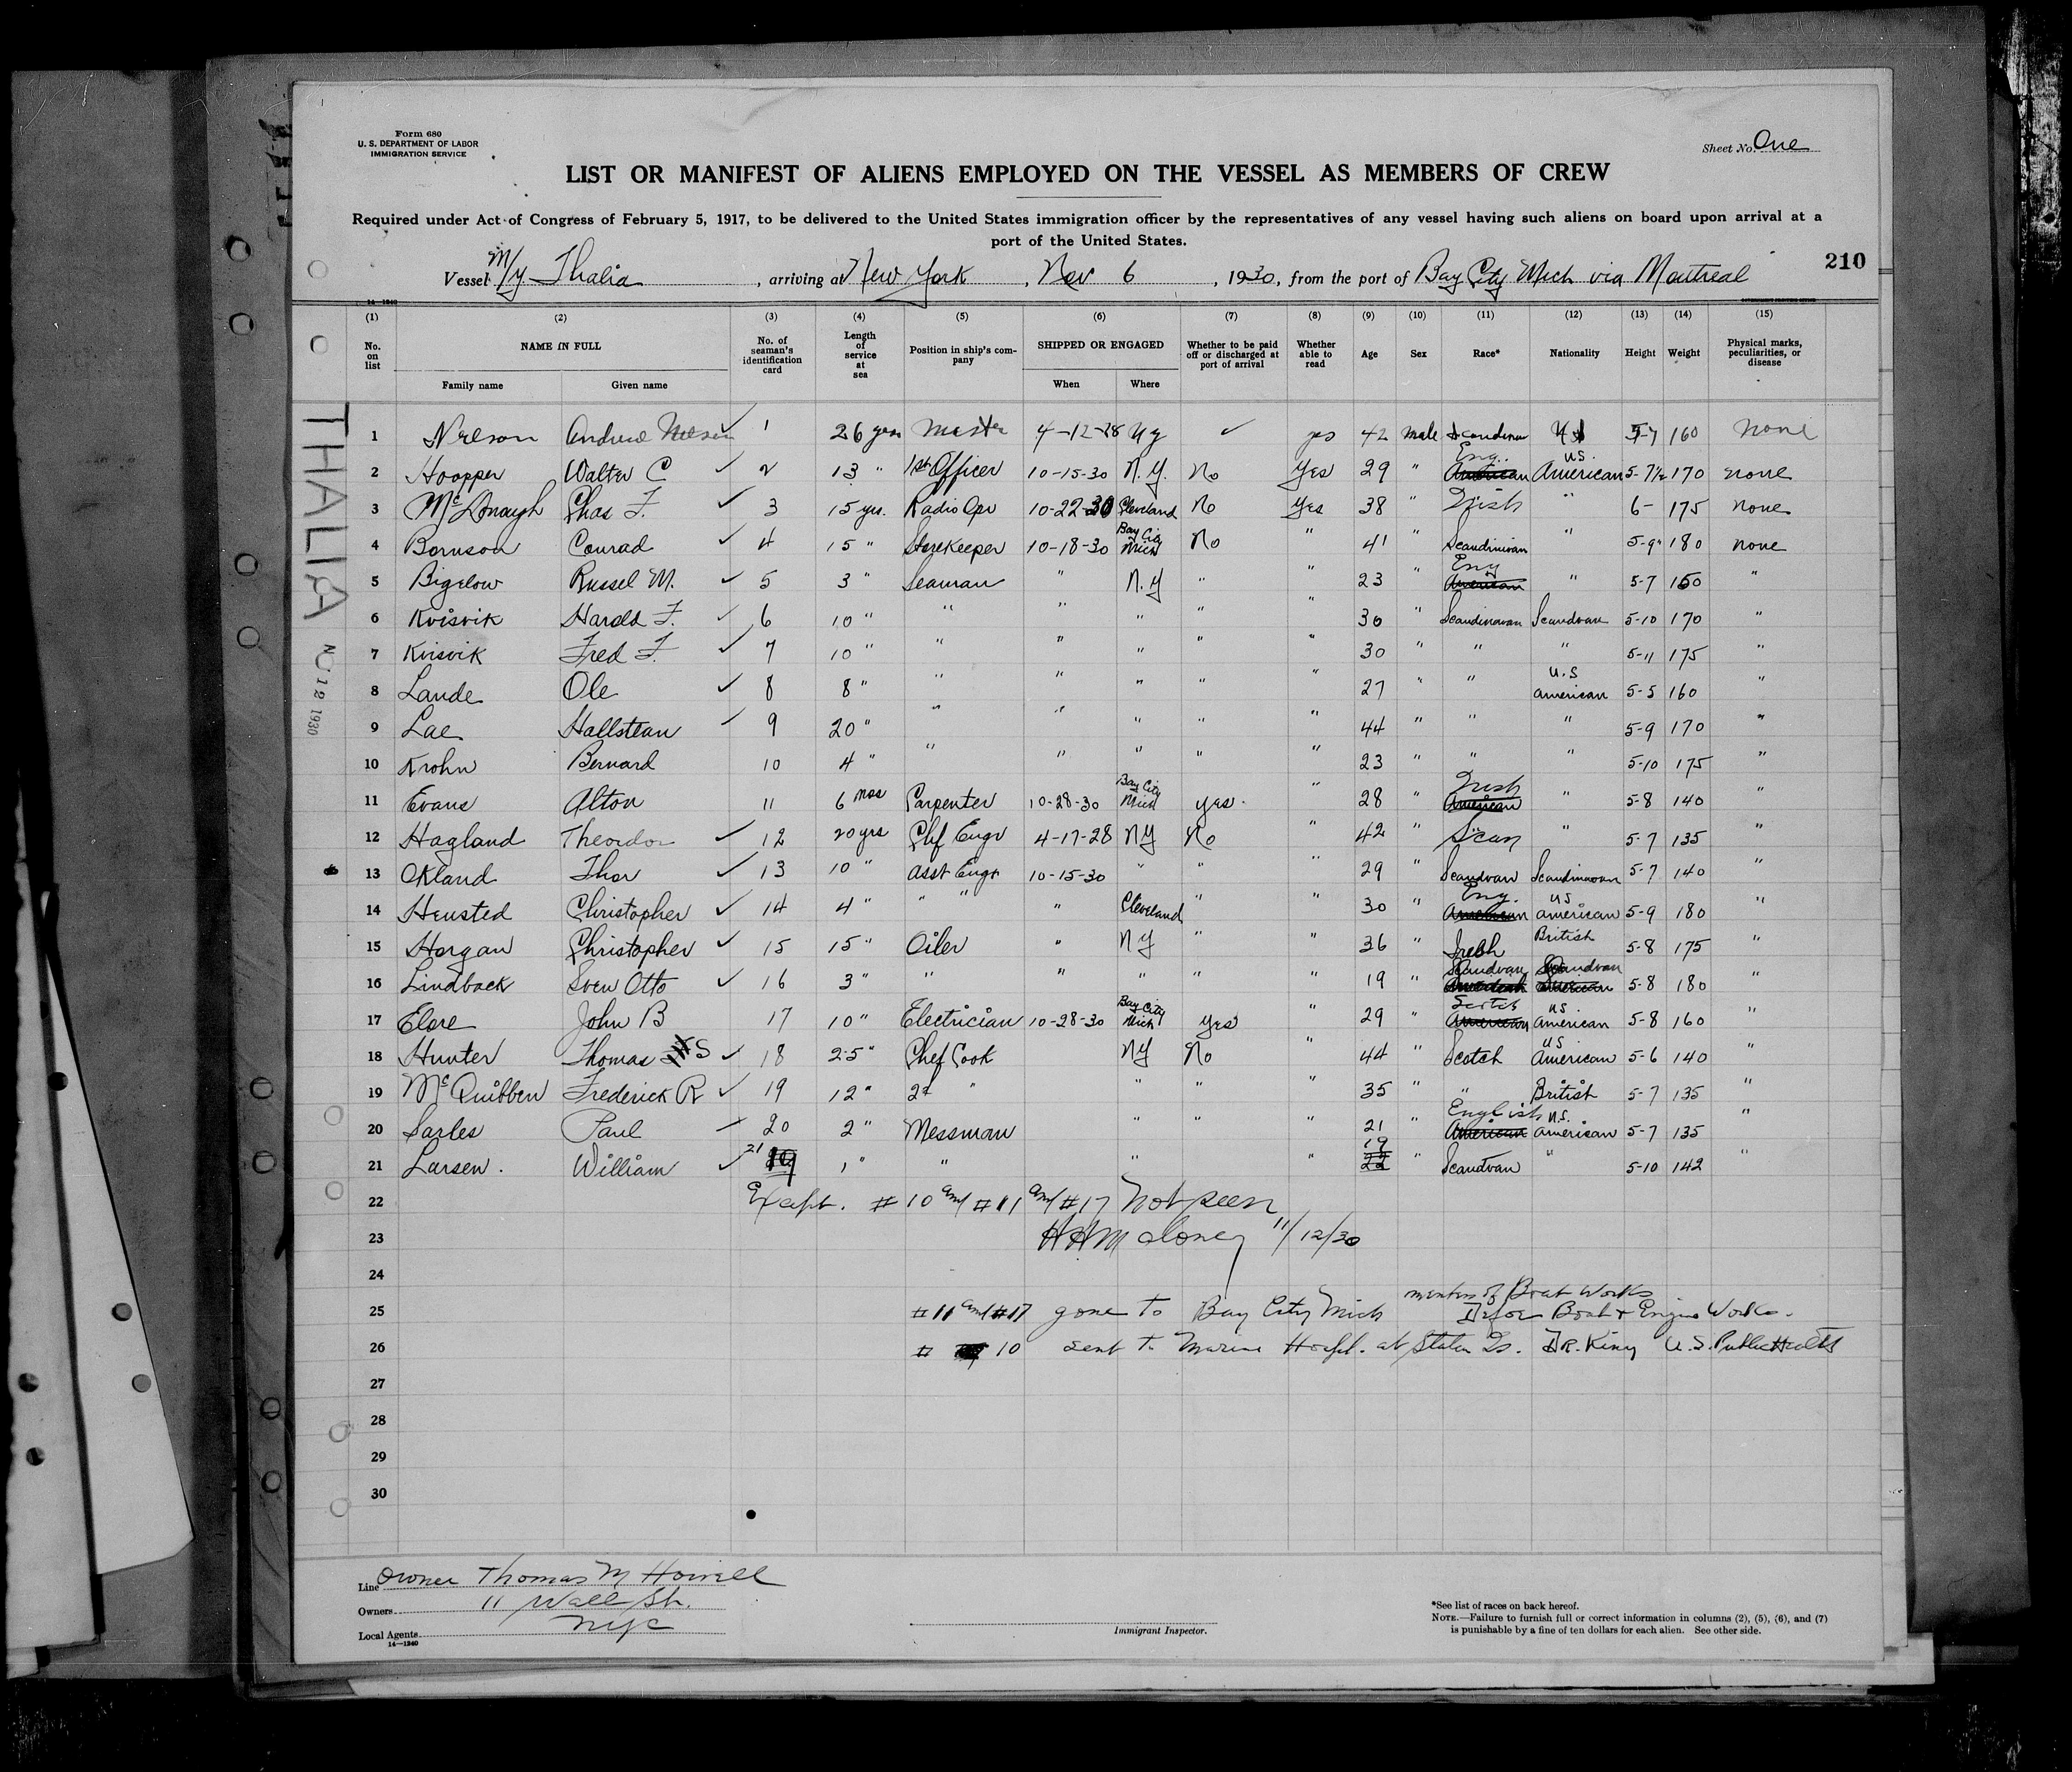 Form 680
U. S. DEPARTMENT OF LABOR
IMMIGRATION SERVICE
Sheet No. One
LIST OR MANIFEST OF ALIENS EMPLOYED ON THE VESSEL AS MEMBERS OF CREW
Required under Act of Congress of February 5, 1917, to be delivered to the United States immigration officer by the representatives of any vessel having such aliens on board upon arrival at a
port of the United States.
210
Vessel M/y. Thalia, arriving at New York, Nov 6, 1930, from the port of Bay City Mich via Montreal
14-1240
(1) (2) (3) (4) (5) (6) (7) (8) (9) (10) (11) (12) (13) (14) (15)
No. on list NAME IN FULL No. of seaman's identification card Length of service at sea Position in ship's company SHIPPED OR ENGAGED Whether to be paid off or discharged at port of arrival Whether able to read Age Sex Race* Nationality Height Weight Physical marks, peculiarities, or disease
Family name Given name When Where
THALIA
12 1930
1 Nelson Andrew Nelson 1 26 years Master 4-12-28 N y yes 42 male Scandinav U S 5-7 160 None
2 Hoopper Walter C 2 13 " 1st Officer 10-15-30 N.Y. No Yes 29 " Eng. American U.S. American 5-7½ 170 none
3 McDonaugh Chas F. 3 15 yrs. Radio Opr 10-22-30 Cleveland No Yes 38 " Irish " 6- 175 none
4 Bornson Conrad 4 15 " Storekeeper 10-18-30 Bay City Mich No " 41 " Scandinivan " 5-9" 180 none
5 Bigelow Russel M. 5 3 " Seaman " N.Y " " 23 " Eng American " 5-7 150 "
6 Kvisvik Harold F. 6 10 " " " " " " 30 " Scandinavan Scandvan 5-10 170 "
7 Kvisvik Fred F. 7 10 " " " " " " 30 " " " 5-11 175 "
8 Lande Ole 8 8 " " " " " " 27 " " U.S american 5-5 160 "
9 Lae Hallstean 9 20 " " " " " " 44 " " " 5-9 170 "
10 Krohn Bernard 10 4 " " " " " " 23 " " " 5-10 175 "
11 Evans Alton 11 6 mos Carpenter 10-28-30 Bay City Mich yes. " 28 " Irish American " 5-8 140 "
12 Hagland Theordor 12 20 yrs Chf Engr 4-17-28 NY No " 42 " Scan " 5-7 135 "
13 Okland Thor 13 10 " Asst Engr 10-15-30 " " " 29 " Scandvan Scandinavan 5-7 140 "
14 Heusted Christopher 14 4 " " " " Cleveland " " 30 " Eng. American US american 5-9 180 "
15 Horgan Christopher 15 15 " Oiler " NY " " 36 " Irebh British 5-8 175 "
16 Lindback Sven Otto 16 3 " " " " " " 19 " Scandvan Scandvan American 5-8 180 "
17 Elore John B 17 10 " Electrician 10-28-30 Bay City Mich Yes " 29 " Scotch American US American 5-8 160 "
18 Hunter Thomas S 18 25 " Chef Cook NY No " 44 " Scotch US American 5-6 140 "
19 McQuibben Frederick R 19 12 " 2d " " " " 35 " " British 5-7 135 "
20 Sarles Paul 20 2 " Messman " " " 21 " English American U.S. american 5-7 135 "
21 Larsen. William 21 1 " " " " 19 22 " Scandvan " 5-10 142 "
22 Except. # 10 and # 11 and # 17 not seen
23 H H Maloney 11/12/30
24
members of Boat Works
25 # 11 and #17 gone to Bay City Mich Defoe Boat & Engine Works.
26 # 10 sent to Marine Hospl. at Staten Is. DR. King U.S. Public Health
27
28
29
30
Line Owner Thomas M Howell
Owners 11 Wall St.
Local Agents NYC
14-1240
Immigrant Inspector.
*See list of races on back hereof.
NOTE.—Failure to furnish full or correct information in columns (2), (5), (6), and (7)
is punishable by a fine of ten dollars for each alien. See other side.